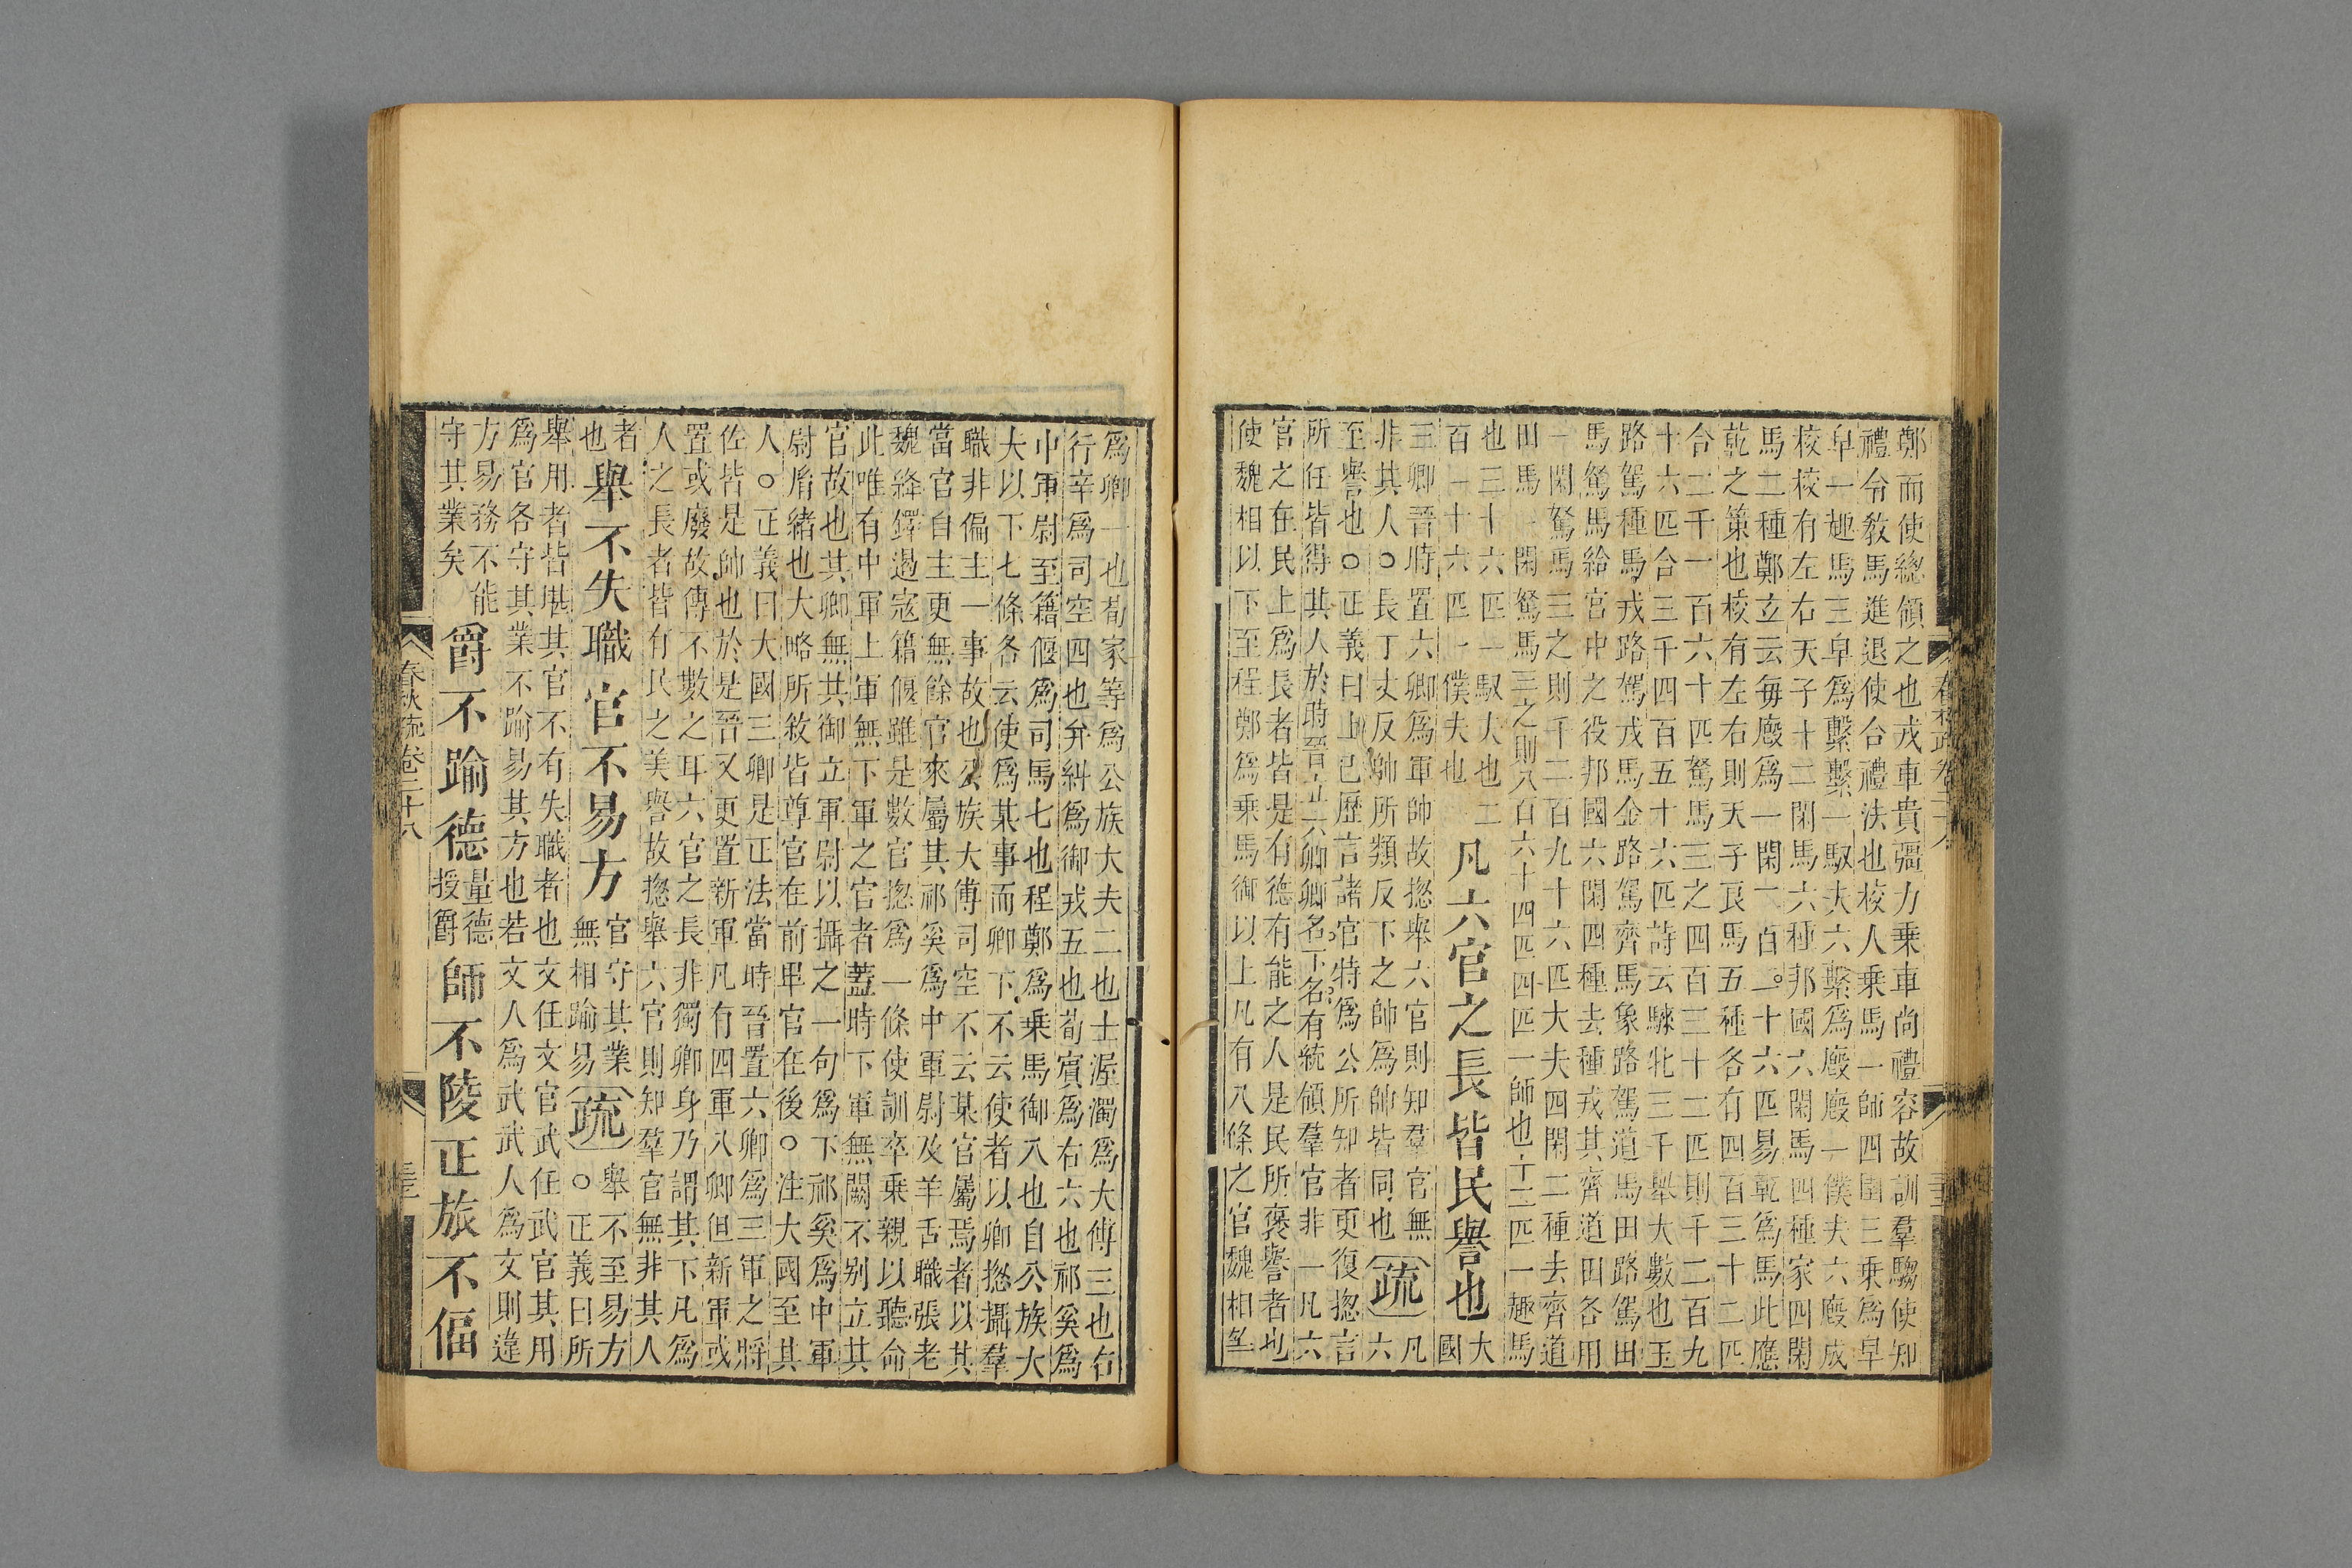 鄭而使總領之也戎車貴彊力乘車尚禮容故訓羣騶使知
禮令敎馬進退使合禮法也校人乘馬一師四圉三乘爲皁
皁一趣馬三皁爲繫繫一馭夫六繫爲廄廄一僕夫六廄成
校校有左右天子十二閑馬六種邦國六閑馬四種家四閑
馬二種鄭玄云每廄爲一閑二百一十六匹易乾爲馬此應
乾之策也校有左右則天子良馬五種各有四百三十二匹
合二千一百六十匹駑馬三之四百三十二匹則千二百九
十六匹合三千四百五十六匹詩云騋牝三千舉大數也玉
路駕種馬戎路駕戎馬金路駕齊馬象路駕道馬田路駕田
馬駑馬給宮中之役邦國六閑四種去種戎其齊道田各用
一閑駑馬三之則千二百九十六匹大夫四閑二種去齊道
田馬一閑駑馬三之則八百六十四匹四匹一師也十二匹一趣馬
也三十六匹一馭大也二
百一十六匹一僕夫也
凡六官之長皆民譽也
大
國
三卿晉時置六卿爲軍帥故揔舉六官則知羣官無
非其人○長丁丈反帥所類反下之帥爲帥皆同也
疏
凡
六
至譽也○正義曰上已歷言諸官特爲公所知者更復揔言
所任皆得其人於時晉立六卿卿名下名有統領羣官非一凡六
官之在民上爲長者皆是有德有能之人是民所褒譽者也
使魏相以下至程鄭爲乘馬御以上凡有八條之官魏相等
爲卿一也荀家等爲公族大夫二也士渥濁爲大傅三也右
行辛爲司空四也弁糾爲御戎五也荀賓爲右六也祁奚爲
中軍尉至籍偃爲司馬七也程鄭爲乘馬御八也自公族大
大以下七條各云使爲某事而卿下不云使者以卿揔攝羣
職非偏主一事故也公族大傅司空不云某官屬焉者以其
當官自主更無餘官來屬其祁奚爲中軍尉及羊舌職張老
魏絳鐸遏寇籍偃雖是數官揔爲一條使訓卒乘親以聽命
此唯有中軍上軍無下軍之官者蓋時下軍無闕不別立其
官故也其卿無其御立軍尉以攝之一句爲下祁奚爲中軍
尉脣緒也大略所敘皆尊官在前畢官在後○注大國至其
人○正義曰大國三卿是正法當時晉置六卿爲三軍之將
佐皆是帥也於是晉又更置新軍凡有四軍八卿但新軍或
置或廢故傳不數之耳六官之長非獨卿身乃謂其下凡爲
人之長者皆有民之美譽故揔舉六官則知羣官無非其人
者
也
舉不失職官不易方
官守其業
無相踰易
疏
舉不至易方
○正義曰所
舉用者皆堪其官不有失職者也文任文官武任武官其用
爲官各守其業不踰易其方也若文人爲武武人爲文則違
方易務不能
守其業矣
爵不踰德
量德
授爵
師不陵正旅不偪
春秋疏卷二十八